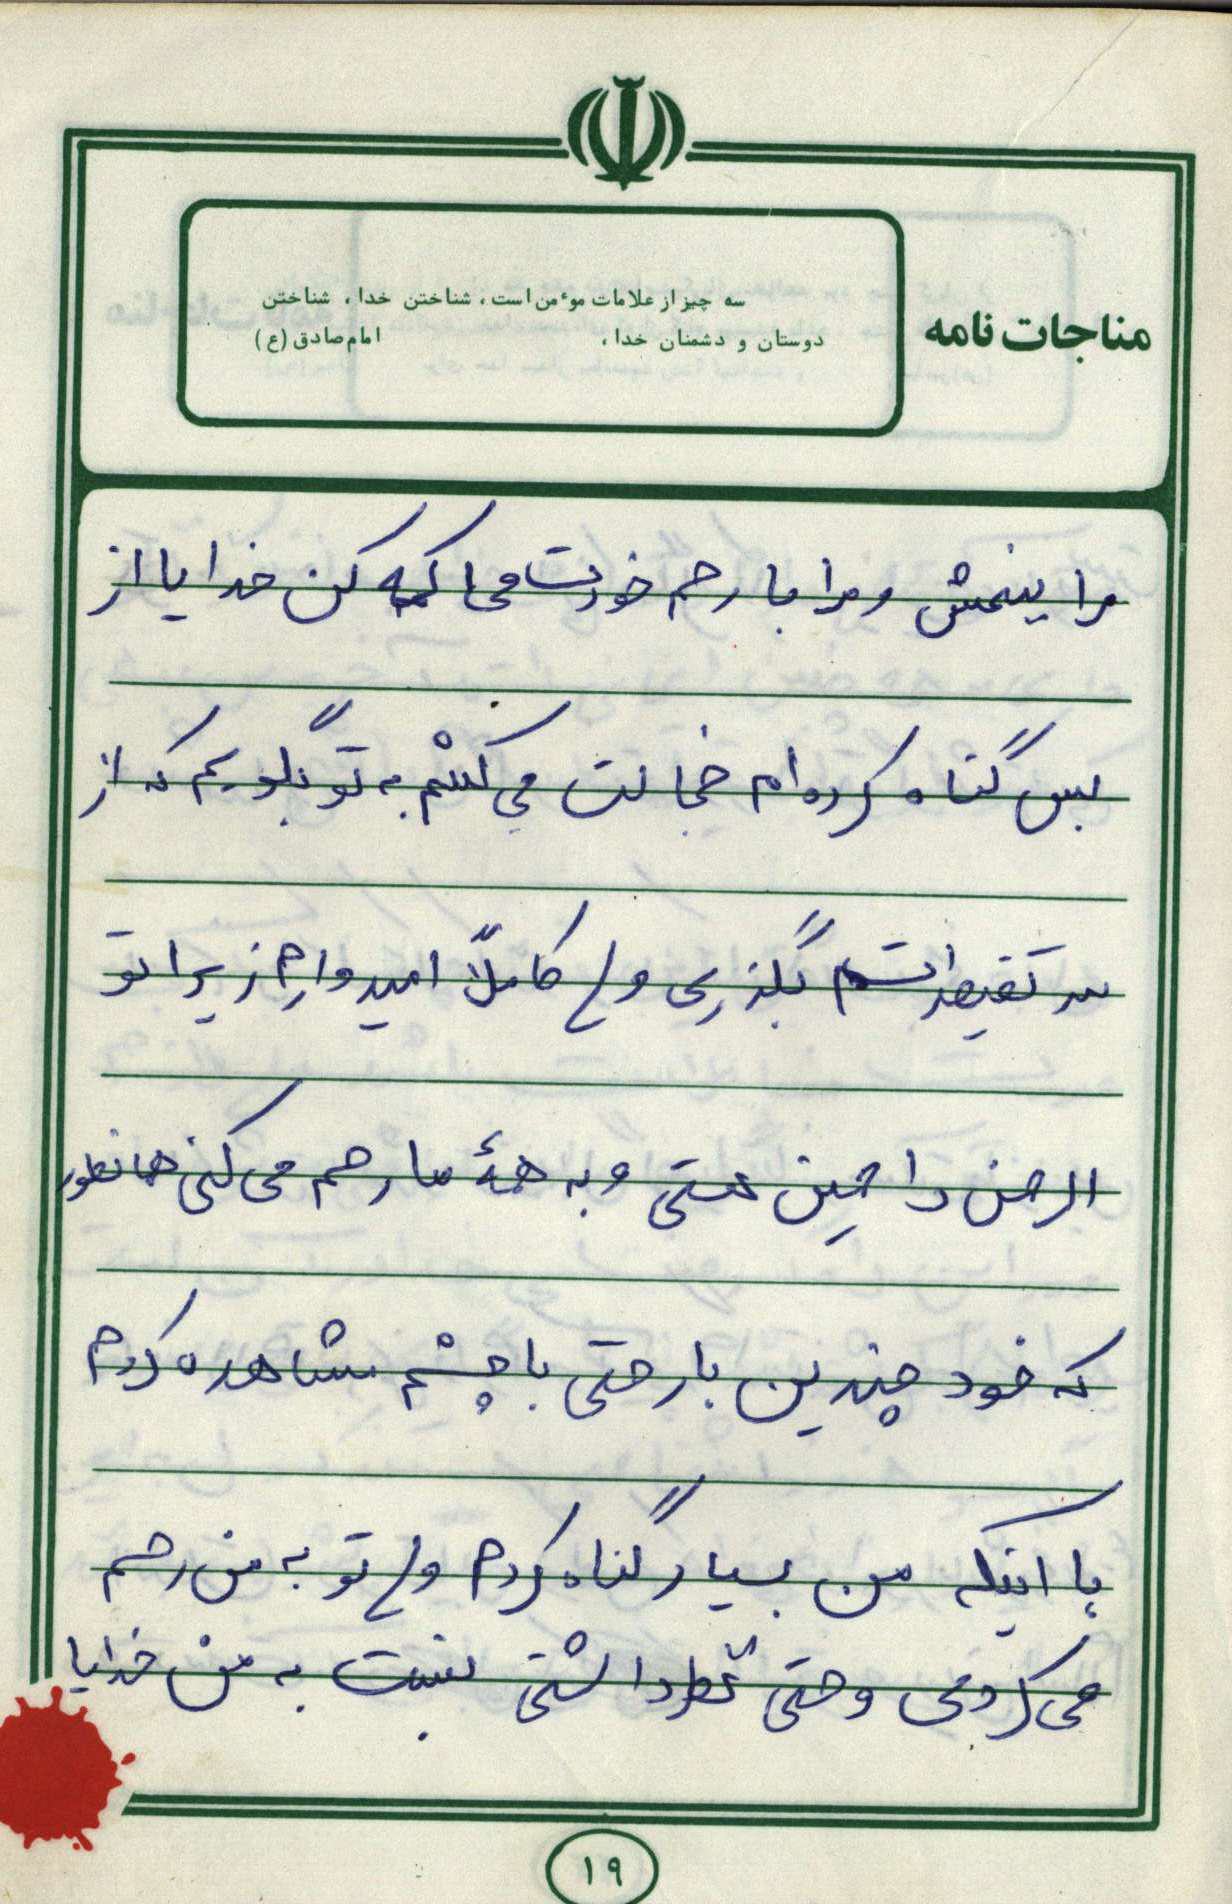 مناجات نامه
سه چیز از علامات موٴمن است، شناختن خدا، شناختن
دوستان و دشمنان خدا، امام صادق (ع)
مرا ببخش و مرا با رحم خودت محاکمه کن خدایا از
بس گناه کرده‌ام خجالت می‌کشم به تو بگویم که از
سر تقصیراتم بگذری ولی کاملاً امیدوارم زیرا تو
الرحمن راحمین هستی و به همهٔ ما رحم می‌کنی همانطور
که خود چندین بار حتی با چشم مشاهده کردم
با اینکه من بسیار گناه کردم ولی تو به من رحم
می‌کردی و حتی نظر داشتی نسبت به من خدایا
۱۹